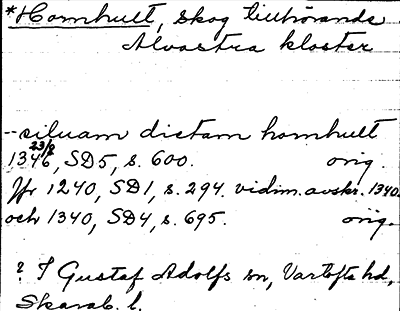 *Hornhult, skog tillhörande
Alvastra kloster
--siluam dictam hornhult
23/8
1346, SD5, s. 600. orig.
Jfr 1240, SD1, s. 294. vidim. avskr. 1340.
och 1340, SD4, s. 695. orig.
? I Gustaf Adolfs sn, Vartofta hd,
Skarab. l.